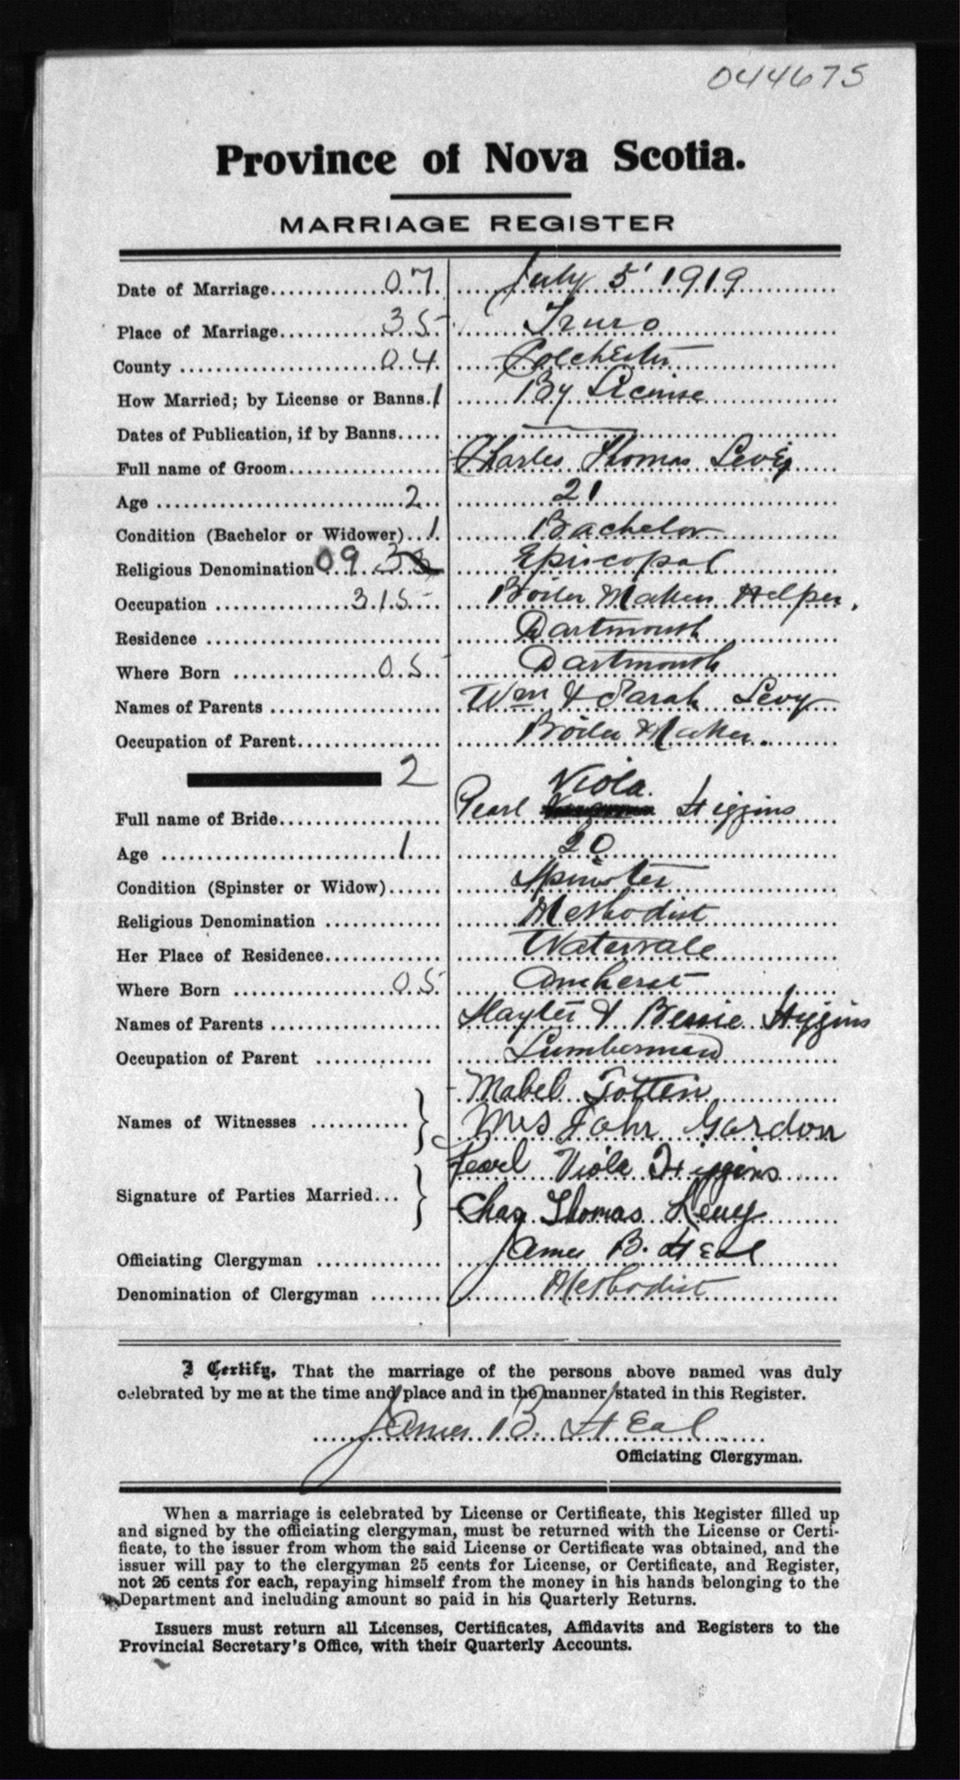 044675
Province of Nova Scotia.
MARRIAGE REGISTER
Date of Marriage 07 July 5 1919
Place of Marriage 35 Truro
County 04 Colchester
How Married; by License or Banns. 1 By License
Dates of Publication, if by Banns
Full name of Groom Charles Thomas Levy
Age 2 21
Condition (Bachelor or Widower) 1 Bachelor
Religious Denomination 09 Episcopal
Occupation 315 Boiler Makers Helper.
Residence Dartmouth
Where Born 05 Dartmouth
Names of Parents Wm & Sarah Levy
Occupation of Parent Boiler Maker.
2
Full name of Bride Pearl Viola. Higgins
Age 1 20
Condition (Spinster or Widow) Spinster
Religious Denomination Methodist
Her Place of Residence Watervale
Where Born 05 Amherst
Names of Parents & Bessie Higgins
Occupation of Parent Lumberman
Names of Witnesses Mabel Totten
Mrs John Gordon
Signature of Parties Married Pearl Viola Higgins
Chas Thomas Levy
Officiating Clergyman James B. Heal
Denomination of Clergyman Methodist
I Certify, That the marriage of the persons above named was duly
celebrated by me at the time and place and in the manner stated in this Register.
James B. Heal
Officiating Clergyman.
When a marriage is celebrated by License or Certificate, this Register filled up
and signed by the officiating clergyman, must be returned with the License or Certi-
ficate, to the issuer from whom the said License or Certificate was obtained, and the
issuer will pay to the clergyman 25 cents for License, or Certificate, and Register,
not 25 cents for each, repaying himself from the money in his hands belonging to the
Department and including amount so paid in his Quarterly Returns.
Issuers must return all Licenses, Certificates, Affidavits and Registers to the
Provincial Secretary's Office, with their Quarterly Accounts.